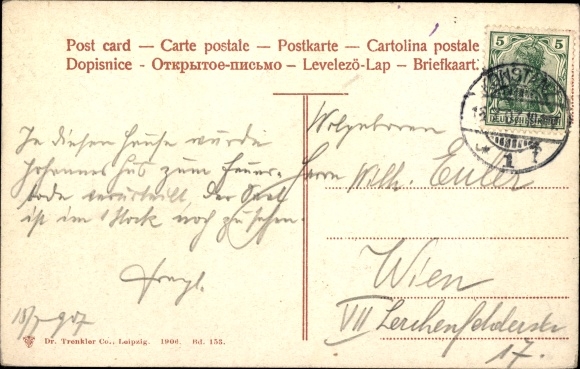 Post card — Carte postale — Postkarte — Cartolina postale
Dopisnice - Открытое-письмо – Levelező-Lap – Briefkaart.
5 5
DEUTSCHES
KONSTANZ
1
In diesen Hause wurde
Johannes Hus zum Feuer-
tode verurteilt, der Saal
ist im 1 Stock noch zu sehen.
18/7 907
Wolgeboren
Herrn Wilh. Euler
Wien
VII Lerchenfelderstr
17.
Dr. Trenkler Co., Leipzig. 1906. Bd. 153.